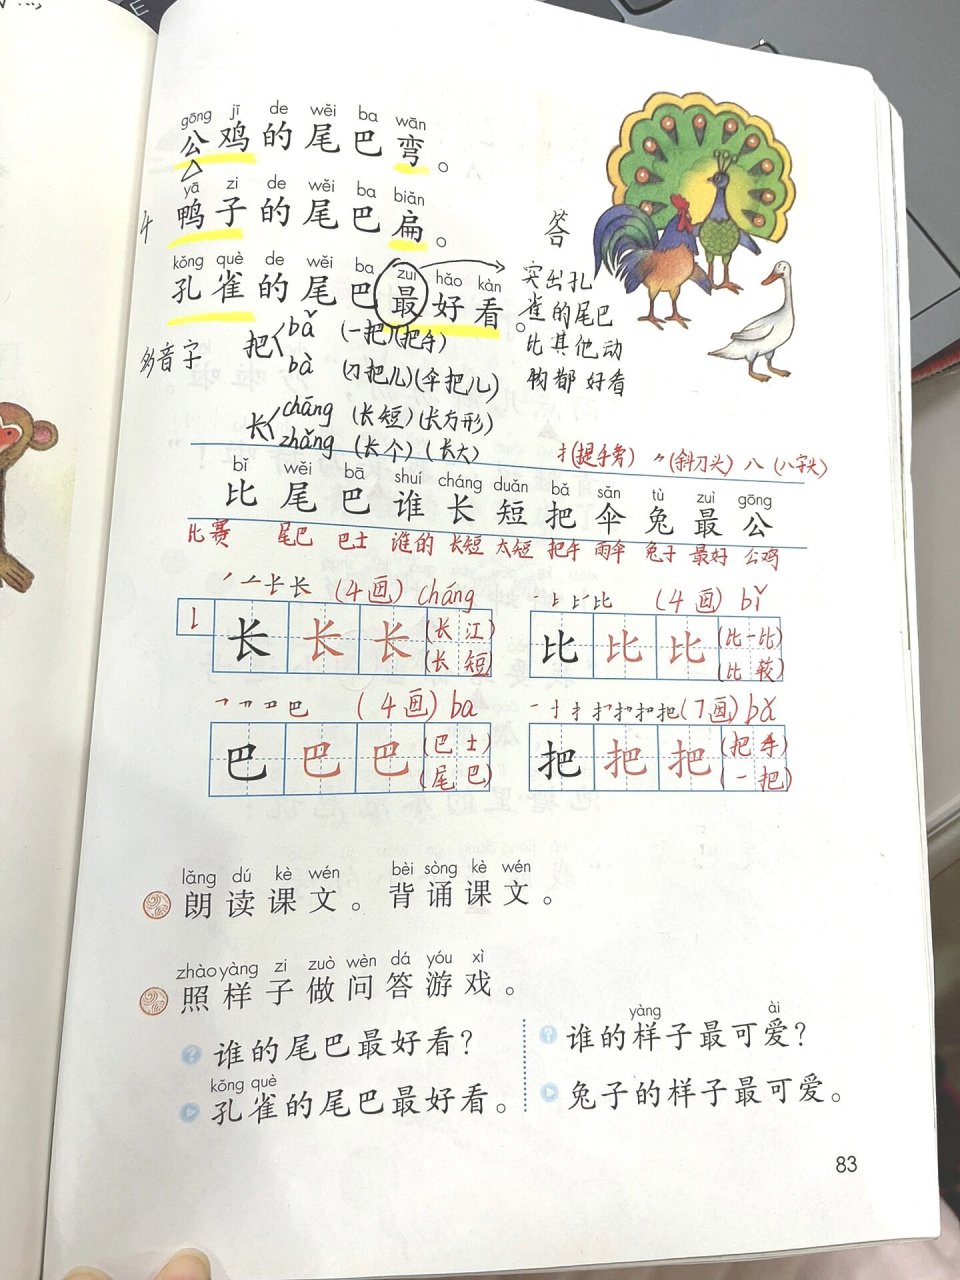 gōng jī de wěi ba wān
公鸡的尾巴弯。
yā zi de wěi ba biǎn
4 鸭子的尾巴扁。
答
kǒng què de wěi ba zuì hǎo kàn
孔雀的尾巴最好看。
突出孔
雀的尾巴
比其他动
物都好看
多音字 把 bǎ (一把)(把手)
bà (刀把儿)(伞把儿)
长 cháng (长短)(长方形)
zhǎng (长个)(长大)
扌(提手旁) ⺈(斜刀头) 八(八字头)
bǐ wěi bā shuí cháng duǎn bǎ sǎn tù zuì gōng
比尾巴谁长短把伞兔最公
比赛 尾巴 巴士 谁的 长短 太短 把手 雨伞 兔子 最好 公鸡
长 (4画) cháng
比 (4画) bǐ
长 长 长 (长江)
(长短)
比 比 比 (比一比)
(比较)
巴 (4画) ba
把 (7画) bǎ
巴 巴 巴 (巴士)
(尾巴)
把 把 把 (把手)
(一把)
lǎng dú kè wén bèi sòng kè wén
朗读课文。背诵课文。
zhào yàng zi zuò wèn dá yóu xì
照样子做问答游戏。
谁的尾巴最好看?
kǒng què
孔雀的尾巴最好看。
yàng ài
谁的样子最可爱?
兔子的样子最可爱。
83